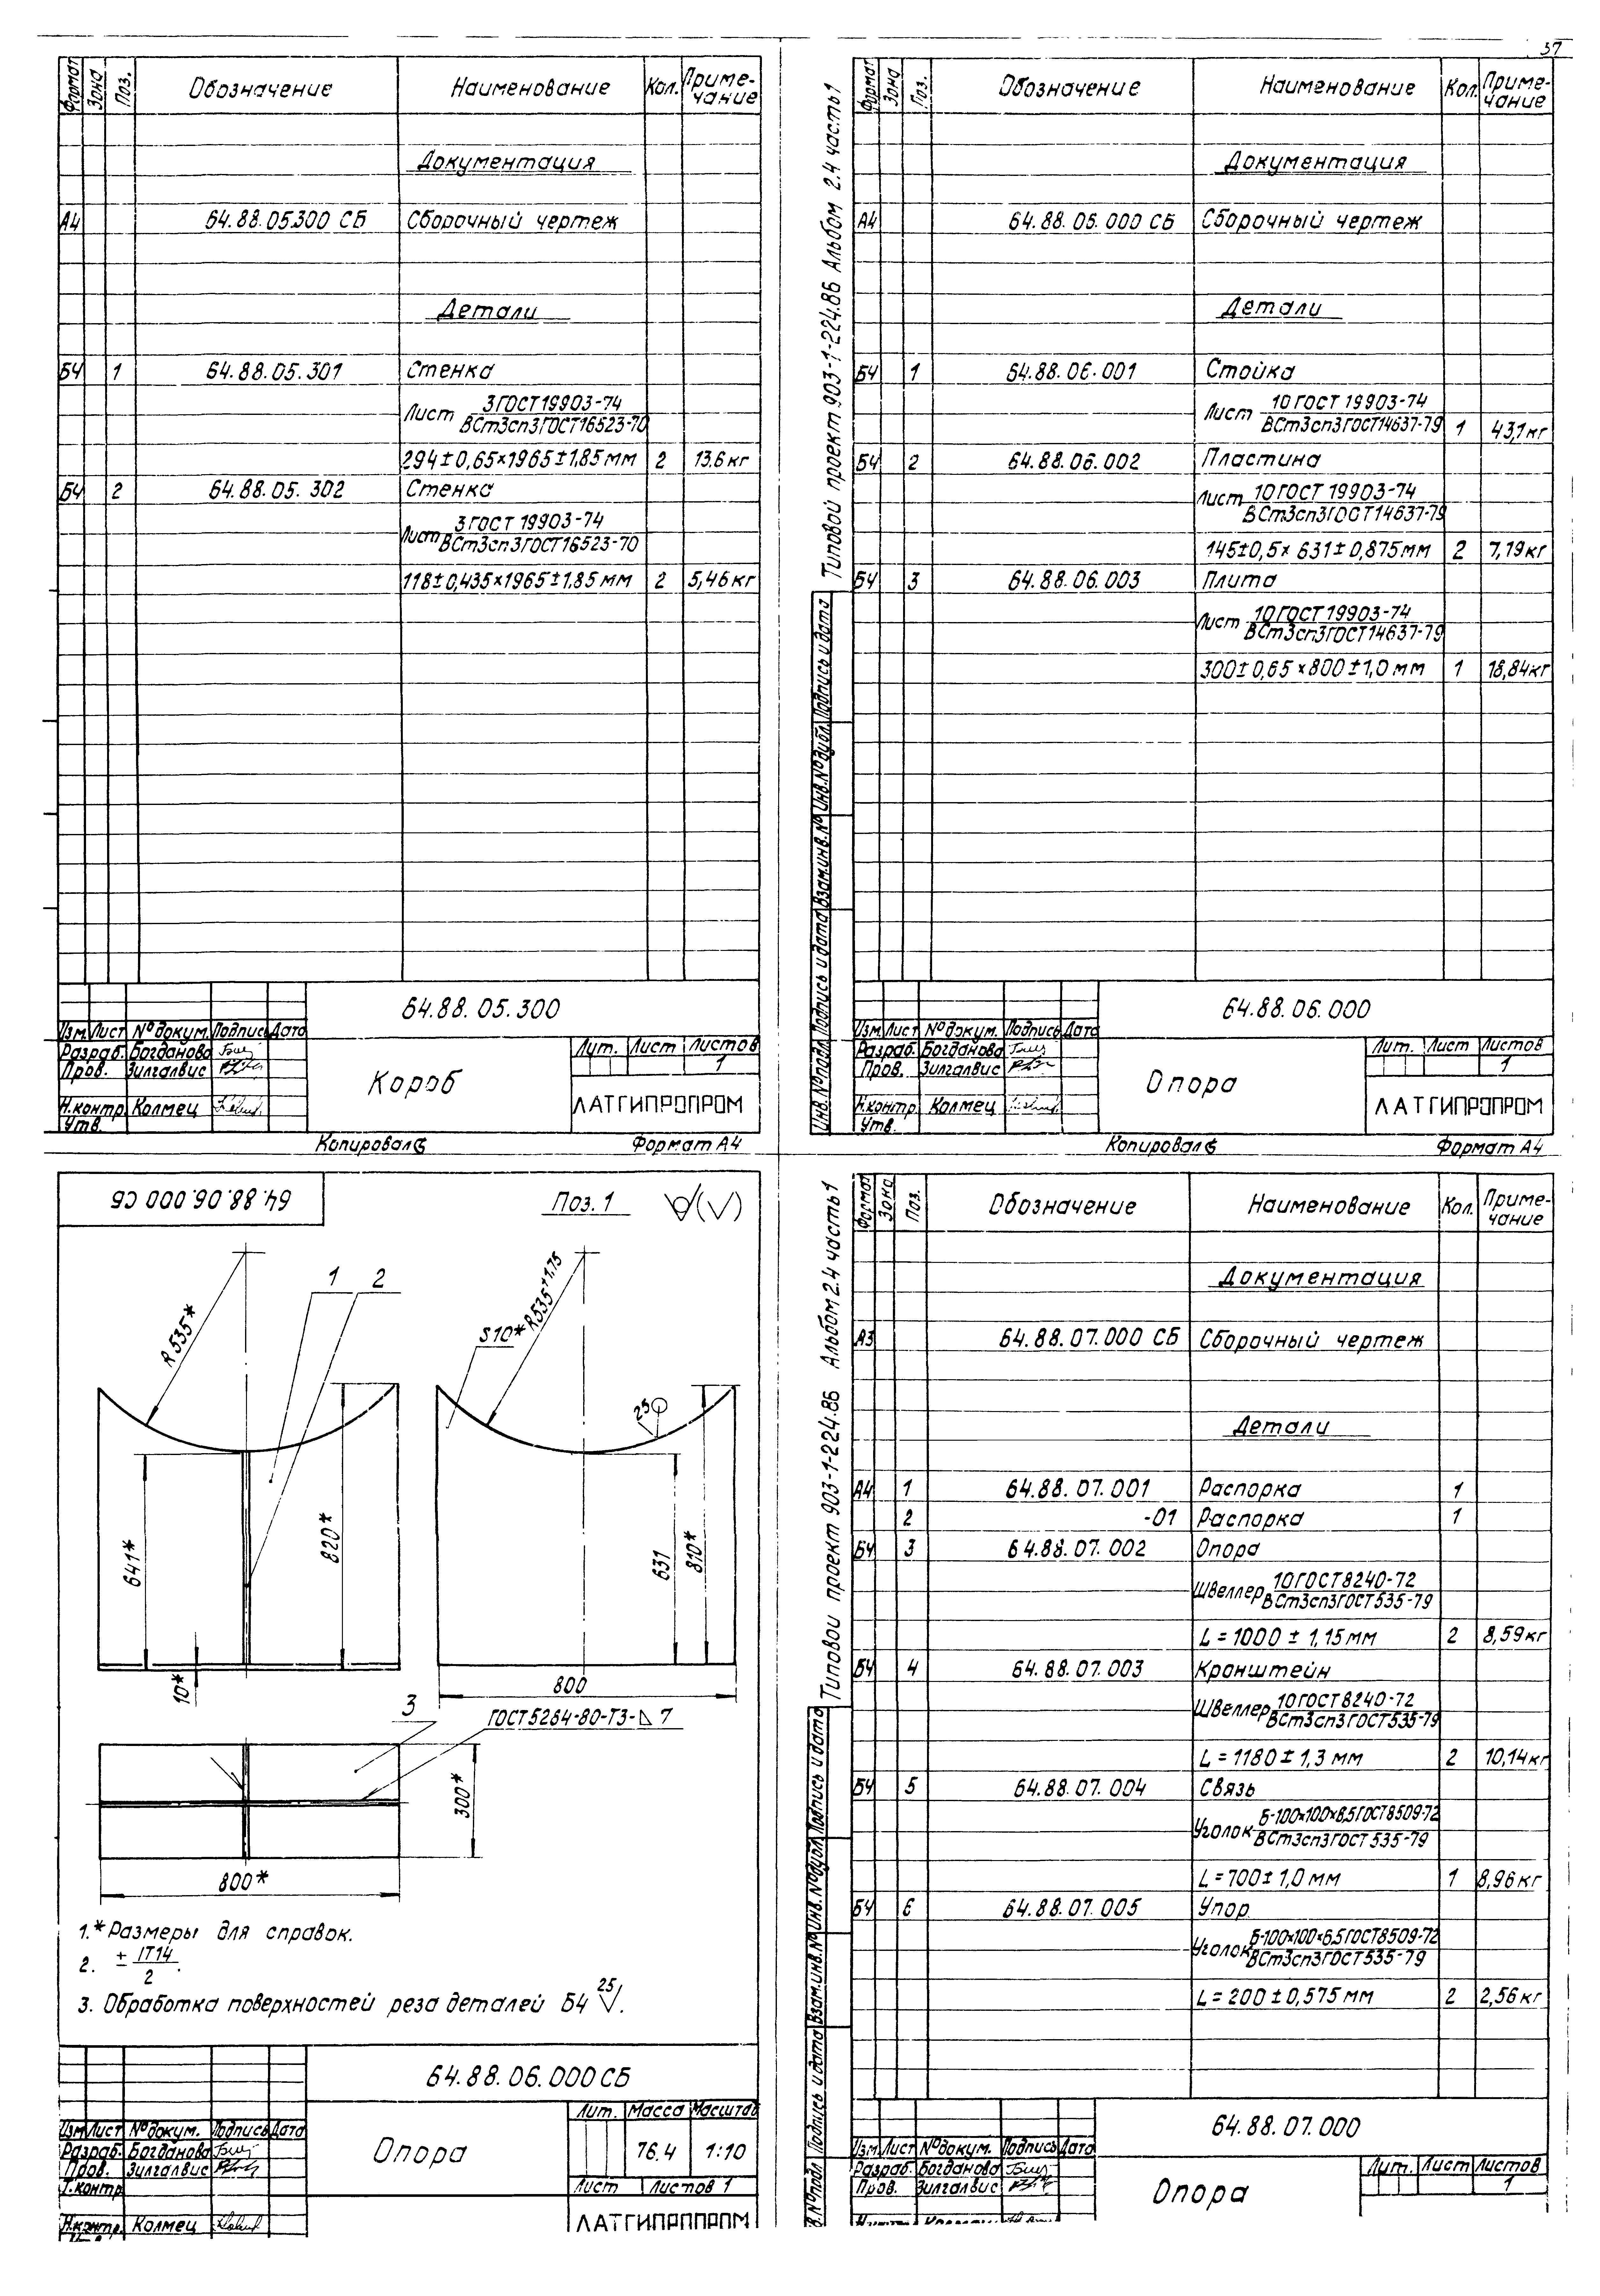 57
Формат
Зона
Поз.
Обозначение
Наименование
Кол.
Приме-
чание
Документация
А4 64.88.05.300 СБ Сборочный чертеж
Детали
БЧ 1 64.88.05.301 Стенка
Лист 3 ГОСТ 19903-74
ВСт3сп3 ГОСТ 16523-70
294±0,65×1965±1,85 мм 2 13,6 кг
БЧ 2 64.88.05.302 Стенка
Лист 3 ГОСТ 19903-74
ВСт3сп3 ГОСТ 16523-70
118±0,435×1965±1,85 мм 2 5,46 кг
64.88.05.300
Изм. Лист № докум. Подпись Дата
Разраб. Богданова
Пров. Зилгалвис
Н.контр. Колмец
Утв.
Короб
Лит. Лист Листов
1
ЛАТГИПРОПРОМ
Копировал
Формат А4
Типовой проект 903-1-224.86 Альбом 2.4 часть 1
Инв.№ подл. Подпись и дата Взам.инв.№ Инв.№ дубл. Подпись и дата
Формат
Зона
Поз.
Обозначение
Наименование
Кол.
Приме-
чание
Документация
А4 64.88.06.000 СБ Сборочный чертеж
Детали
БЧ 1 64.88.06.001 Стойка
Лист 10 ГОСТ 19903-74
ВСт3сп3 ГОСТ 14637-79 1 43,1 кг
БЧ 2 64.88.06.002 Пластина
Лист 10 ГОСТ 19903-74
ВСт3сп3 ГОСТ 14637-79
145±0,5×631±0,875 мм 2 7,19 кг
БЧ 3 64.88.06.003 Плита
Лист 10 ГОСТ 19903-74
ВСт3сп3 ГОСТ 14637-79
300±0,65×800±1,0 мм 1 18,84 кг
64.88.06.000
Изм. Лист № докум. Подпись Дата
Разраб. Богданова
Пров. Зилгалвис
Н.контр. Колмец
Утв.
Опора
Лит. Лист Листов
1
ЛАТГИПРОПРОМ
Копировал
Формат А4
64.88.06.000 СБ
Поз. 1
R 535*
1
2
641*
820*
10*
S10*
R535±1,75
25
631
810*
800
3
ГОСТ 5264-80-Т3-⊿ 7
300*
800*
1.* Размеры для справок.
2. ± IT14
2 .
3. Обработка поверхностей реза деталей БЧ 25√.
64.88.06.000 СБ
Изм. Лист № докум. Подпись Дата
Разраб. Богданова
Пров. Зилгалвис
Т.контр.
Н.контр. Колмец
Утв.
Опора
Лит. Масса Масштаб
76.4 1:10
Лист Листов 1
ЛАТГИПРОПРОМ
Типовой проект 903-1-224.86 Альбом 2.4 часть 1
№ подл. Подпись и дата Взам.инв.№ Инв.№ дубл. Подпись и дата
Формат
Зона
Поз.
Обозначение
Наименование
Кол.
Приме-
чание
Документация
А3 64.88.07.000 СБ Сборочный чертеж
Детали
А4 1 64.88.07.001 Распорка 1
2 -01 Распорка 1
БЧ 3 64.88.07.002 Опора
Швеллер 10 ГОСТ 8240-72
ВСт3сп3 ГОСТ 535-79
L = 1000 ± 1,15 мм 2 8,59 кг
БЧ 4 64.88.07.003 Кронштейн
Швеллер 10 ГОСТ 8240-72
ВСт3сп3 ГОСТ 535-79
L = 1180 ± 1,3 мм 2 10,14 кг
БЧ 5 64.88.07.004 Связь
Уголок Б-100×100×6,5 ГОСТ 8509-72
ВСт3сп3 ГОСТ 535-79
L = 700 ± 1,0 мм 1 8,96 кг
БЧ 6 64.88.07.005 Упор
Уголок Б-100×100×6,5 ГОСТ 8509-72
ВСт3сп3 ГОСТ 535-79
L = 200 ± 0,575 мм 2 2,56 кг
64.88.07.000
Изм. Лист № докум. Подпись Дата
Разраб. Богданова
Пров. Зилгалвис
Опора
Лит. Лист Листов
1